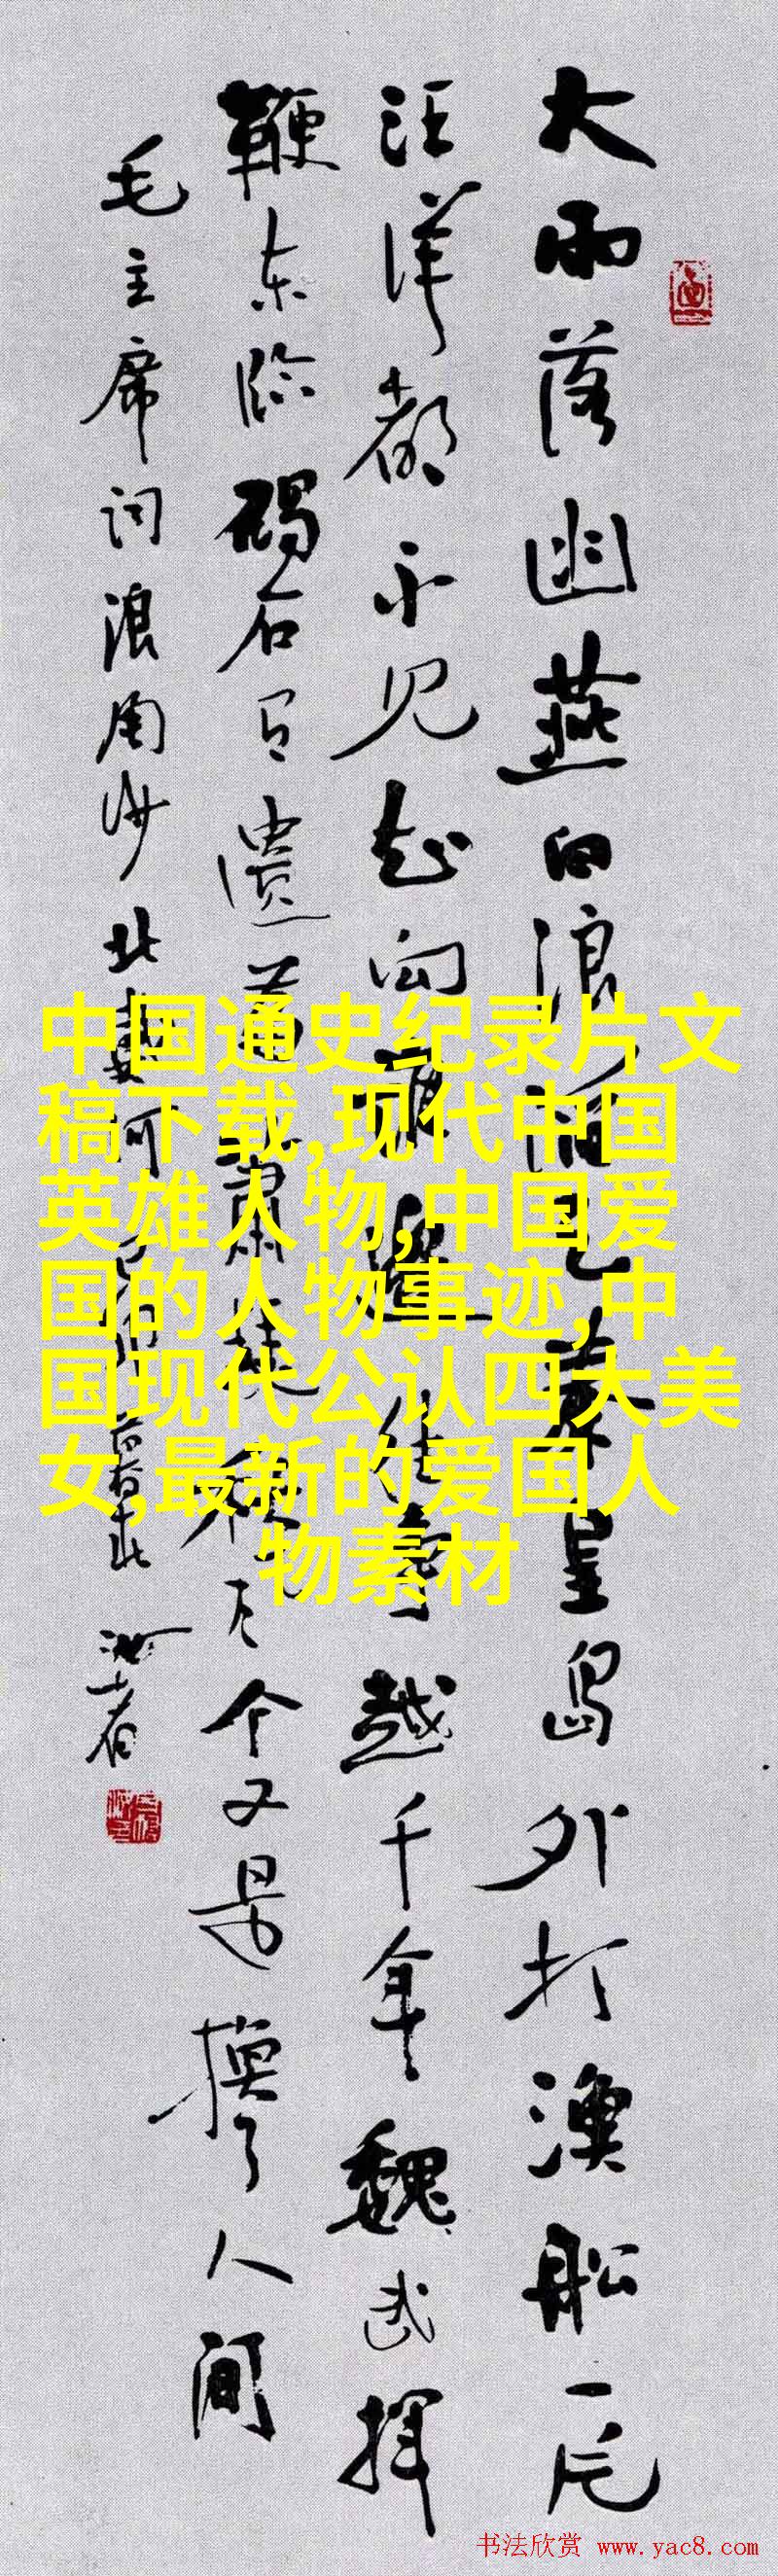 大雨落幽燕白浪滔天秦皇島外打漁船一片
汪洋都不見知向誰邊往事越千年魏武揮
鞭東臨碣石有遺篇蕭瑟秋風今又是換了人间
毛主席词浪淘沙北戴河
中国通史纪录片文
稿下载,现代中国
英雄人物,中国爱
国的人物事迹,中
国现代公认四大美
女,最新的爱国人
物素材
书法欣赏 www.yac8.com